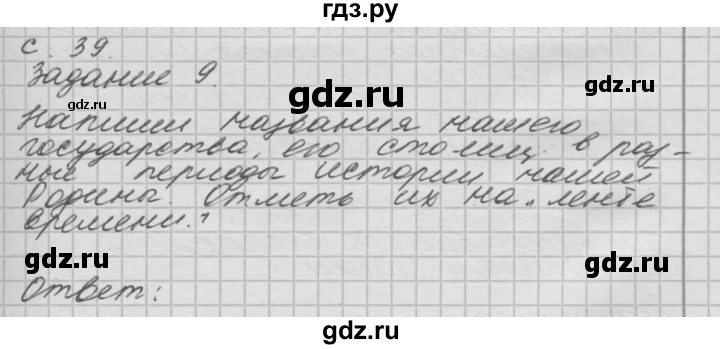 гдз.ру
с. 39.
Задание 9.
gdz.ru
gdz.ru
gdz.ru
Напиши названия нашего
государства, его столиц в раз-
ные периоды истории нашей
Родины. Отметь их на "ленте
времени."
gdz.ru
gdz.ru
gdz.ru
gdz.ru
Ответ:
gdz.ru